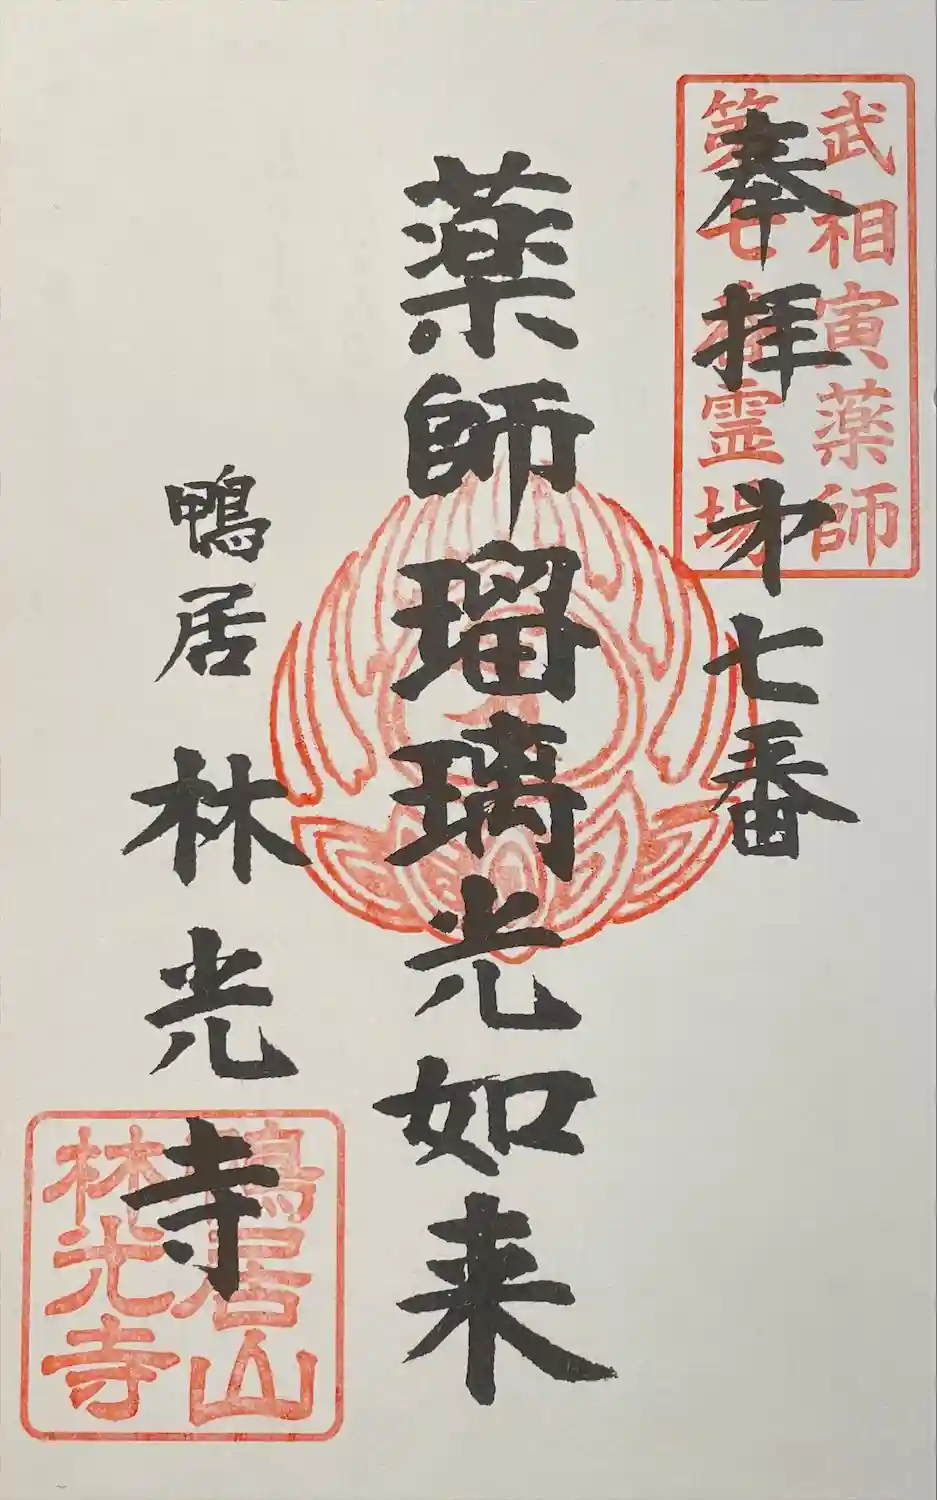 武相寅薬師
第七番霊場
奉拝 第七番
薬師瑠璃光如来
鴨居 林光寺
鴨居山
林光寺